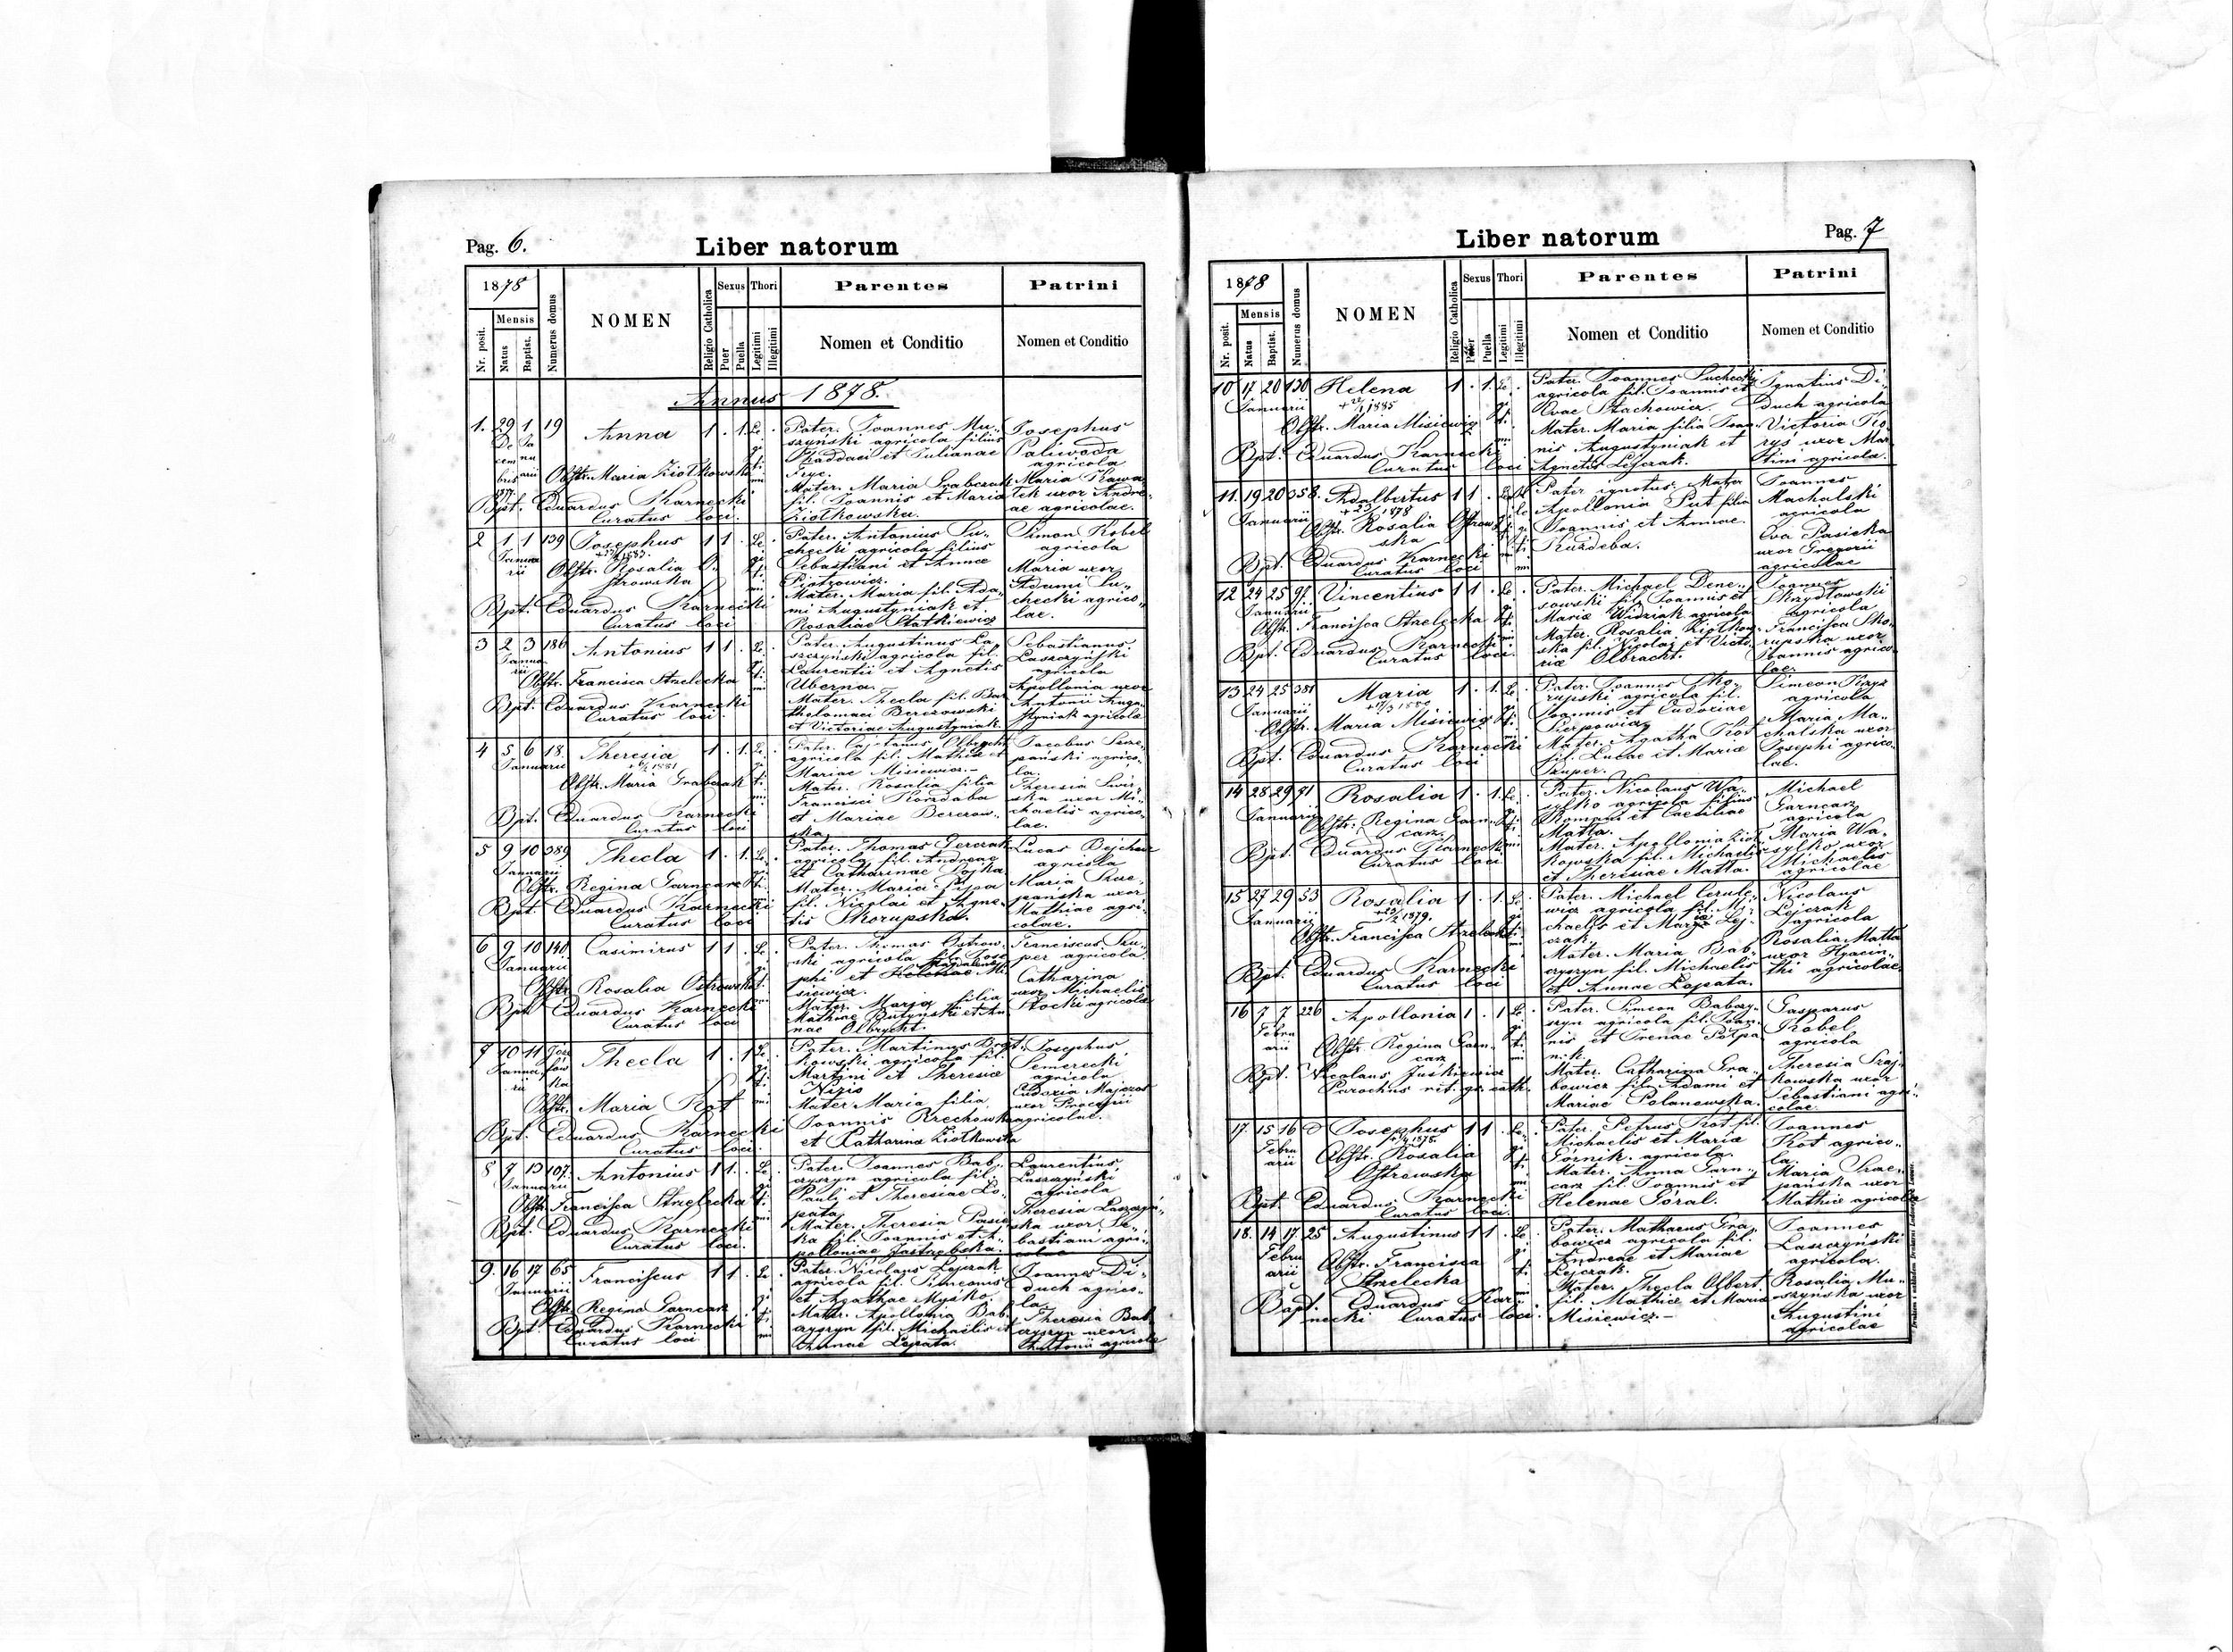 Pag. 6.
Liber natorum
1878
Nr. posit.
Mensis
Natus
Baptist.
Numerus domus
NOMEN
Religio Catholica
Sexus
Puer
Puella
Thori
Legitimi
Illegitimi
Parentes
Nomen et Conditio
Patrini
Nomen et Conditio
Annus 1878.
1. 29 1 19 Anna 1 . 1.
Decembris 1877. Januarii
Obstr. Maria Ziołkowska
Bpt. Eduardus Karnecki
Curatus loci.
Pater. Joannes Mu-
szyński agricola filius
Thaddaei et Julianae
Mater. Maria Grabczak
fil. Joannis et Maria
Ziołkowska.
Josephus
Paliwoda
agricola
Maria Kawa
tek uxor Andre-
ae agricolae.
2 1 1 139 Josephus 1 1 .
Januarii
Obstr. Rosalia O-
strowska
Bpt. Eduardus Karnecki
Curatus loci
Pater. Antonius Su-
checki agricola filius
Sebastiani et Annae
Piotrowicz.
Mater. Maria fil. Ada-
mi Augustyniak et
Rosaliae Statkiewicz
Simon Kobel
agricola
Maria uxor
Adami Su-
checki agrico-
lae.
3 2 3 186 Antonius 1 1 .
Januarii
Obstr. Francisca Strzelecka
Bpt. Eduardus Karnecki
Curatus loci
Pater. Augustinus La-
szczyński agricola fil.
Laurentii et Agnetis
Uberna.
Mater. Thecla fil. Bar
tholomaei Berezowski
et Victoriae Augustyniak.
Sebastianus
Laszczyński
agricola
Apollonia uxor
Antonii Augu-
styniak agricolae
4 5 6 18 Theresia 1 . 1.
Januarii
Obstr. Maria Grabczak
Bpt. Eduardus Karnecki
Curatus loci
Pater. Cajetanus Olbrycht
agricola fil. Mathiae et
Mariae Misiewicz.-
Mater. Rosalia filia
Francisci Korzdaba
et Mariae Berezow-
ska
Jacobus Szcze-
pański agrico-
la.
Theresia Swir-
ska uxor Mi-
chaelis agrico-
lae.
5 9 10 389 Thecla 1 . 1.
Januarii
Obstr. Regina Garncarz
Bpt. Eduardus Karnecki
Curatus loci
Pater. Thomas
agricola fil. Andreae
et Catharinae Sojka
Mater. Maria
fil. Nicolai et Agne-
tis Skorupska.
Lucas
agricola
Maria Szcze-
panska uxor
Mathiae agri-
colae.
6 9 10 140 Casimirus 1 1 .
Januarii
Obstr. Rosalia Ostrowska
Bpt. Eduardus Karnecki
Curatus loci
Pater. Thomas Ostrow-
ski agricola fil. Jose
phi et Magdalenae Mi-
siewicz.
Mater. Maria filia
Mathiae Butyński et An-
nae Olbrycht.
Franciscus Szu-
per agricola
Catharina
uxor Michaelis
Stocki agricola
7 10 11 Thecla 1 . 1
Januarii
Obstr. Maria Kot
Bpt. Eduardus Karnecki
Curatus loci.
Pater. Martinus
kowski agricola fil.
Martini et Theresiae
Nizio
Mater Maria filia
Joannis Brechowka
et Katharina Ziołkowska
Josephus
Semerecki
agricola
Eudoxia
uxor Procopii
agricolae.
8 9 13 107. Antonius 1 1 .
Januarii
Obstr. Francisca Strzelecka
Bpt. Eduardus Karnecki
Curatus loci.
Pater. Joannes Bab-
czyszyn agricola fil.
Pauli et Theresiae Lo-
pata
Mater. Theresia Pasie
ka fil. Joannis et A-
polloniae Jastrzebska.
Laurentius
Laszczyński
agricola
Theresia Laszczyń-
ska uxor Se-
bastiani agri-
colae
9. 16 17 65 Franciscus 1 1 .
Januarii
Obstr. Regina Garncarz
Bpt. Eduardus Karnecki
Curatus loci
Pater. Nicolaus Lejczak
agricola fil. Simeonis
et Agathae Myśko.
Mater. Apollonia Bab
czyszyn fil. Michaëlis et
Annae Lopata.
Joannes Di-
duch agrico-
la
Theresia Bab
czyszyn uxor
Antonii agricolae
Liber natorum
Pag. 7
1878
Nr. posit.
Mensis
Natus
Baptist.
Numerus domus
NOMEN
Religio Catholica
Sexus
Puer
Puella
Thori
Legitimi
Illegitimi
Parentes
Nomen et Conditio
Patrini
Nomen et Conditio
10 17 20 130 Helena 1 . 1.
Januarii
Obstr. Maria Misiewicz
Bpt. Eduardus Karnecki
Curatus loci
Pater. Joannes Suchecki
agricola fil. Joannis et
Evae Stachowicz.
Mater. Maria filia Joan-
nis Augustyniak et
Agnetis Lejczak.
Ignatius Di-
duch agricola
Victoria Ko-
rys uxor Mar
tini agricolae.
11. 19 20 358. Adalbertus 1 1 .
Januarii
Obstr. Rosalia Ostrow-
ska
Bpt. Eduardus Karnecki
Curatus loci
Pater ignotus. Mater
Apollonia Put filia
Joannis et Annae
Każdeba.
Joannes
Machalski
agricola
Eva Pasieka
uxor Gregorii
agricolae
12 24 25 97. Vincentius 1 1 .
Januarii
Obstr. Francisca Strzelecka
Bpt. Eduardus Karnecki
Curatus loci.
Pater. Michael Dene-
sowski fil. Joannis et
Maria Widziak agricola
Mater. Rosalia Ziołkow-
ska fil. Nicolai et Victo-
riae Olbracht.
Joannes
Skrzydłowski
agricola
Francisca Sko-
rupska uxor
Joannis agrico-
lae.
13 24 25 381 Maria 1 . 1.
Januarii
Obstr. Maria Misiewicz
Bpt. Eduardus Karnecki
Curatus loci
Pater. Joannes Sko-
rupski agricola fil.
Joannis et Eudoxiae
Mater. Agatha Kot
fil. Lucae et Mariae
Szuper.
Simeon
agricola
Maria Ma-
chalska uxor
Josephi agrico-
lae.
14 28 29 91 Rosalia 1 . 1.
Januarii
Obstr. Regina Garn-
carz
Bpt. Eduardus Karnecki
Curatus loci.
Pater. Nicolaus Wa-
sylko agricola filius
Romani et Caeciliae
Matta.
Mater. Apollonia Zioł-
kowska fil. Michaelis
et Theresiae Matta.
Michael
Garncarz
agricola
Maria Wa-
sylko uxor
Michaelis
agricolae
15 27 29 53 Rosalia 1 . 1.
Januarii
Obstr. Francisca Strzelecka
Bpt. Eduardus Karnecki
Curatus loci
Pater. Michael Cerule-
wicz agricola fil. Mi-
chaelis et Mariae Lej-
czak.
Mater. Maria Bab-
czyszyn fil. Michaelis
et Annae Lopata.
Nicolaus
Lejczak
agricola
Rosalia Matta
uxor Hyacin-
thi agricolae
16 7 7 226 Apollonia 1 . 1
Februarii
Obstr. Regina Garn-
carz
Bpt. Nicolaus Juśkiewicz
Parochus rit. gr. cath.
Pater. Simeon Babczy-
szyn agricola fil. Joan-
nis et Irenae
Mater. Catharina Gra-
bowicz fil. Adami et
Mariae Polanowska.
Gasparus
Kobel
agricola
Theresia
kowska uxor
Sebastiani agri-
colae.
17. 15 16 Josephus 1 1 .
Februarii
Obstr. Rosalia
Ostrowska
Bpt. Eduardus Karnecki
Curatus loci.
Pater. Petrus Kot fil.
Michaelis et Maria
Górnik. agricola.
Mater. Anna Garn-
carz fil. Joannis et
Helenae Góral.
Joannes
Kot agrico-
la.
Maria Szcze-
pańska uxor
Mathiae agricola
18. 14 17. 25 Augustinus 1 1 .
Februarii
Obstr. Francisca
Strzelecka
Bapt. Eduardus Kar-
necki Curatus loci.
Pater. Mathaeus Gra-
bowicz agricola fil.
Andreae et Mariae
Lejczak.
Mater. Thecla Olbert
fil. Mathiae et Maria
Misiewicz.-
Joannes
Laszczyński
agricola.
Rosalia Mu-
szyńska uxor
Augustini
agricolae